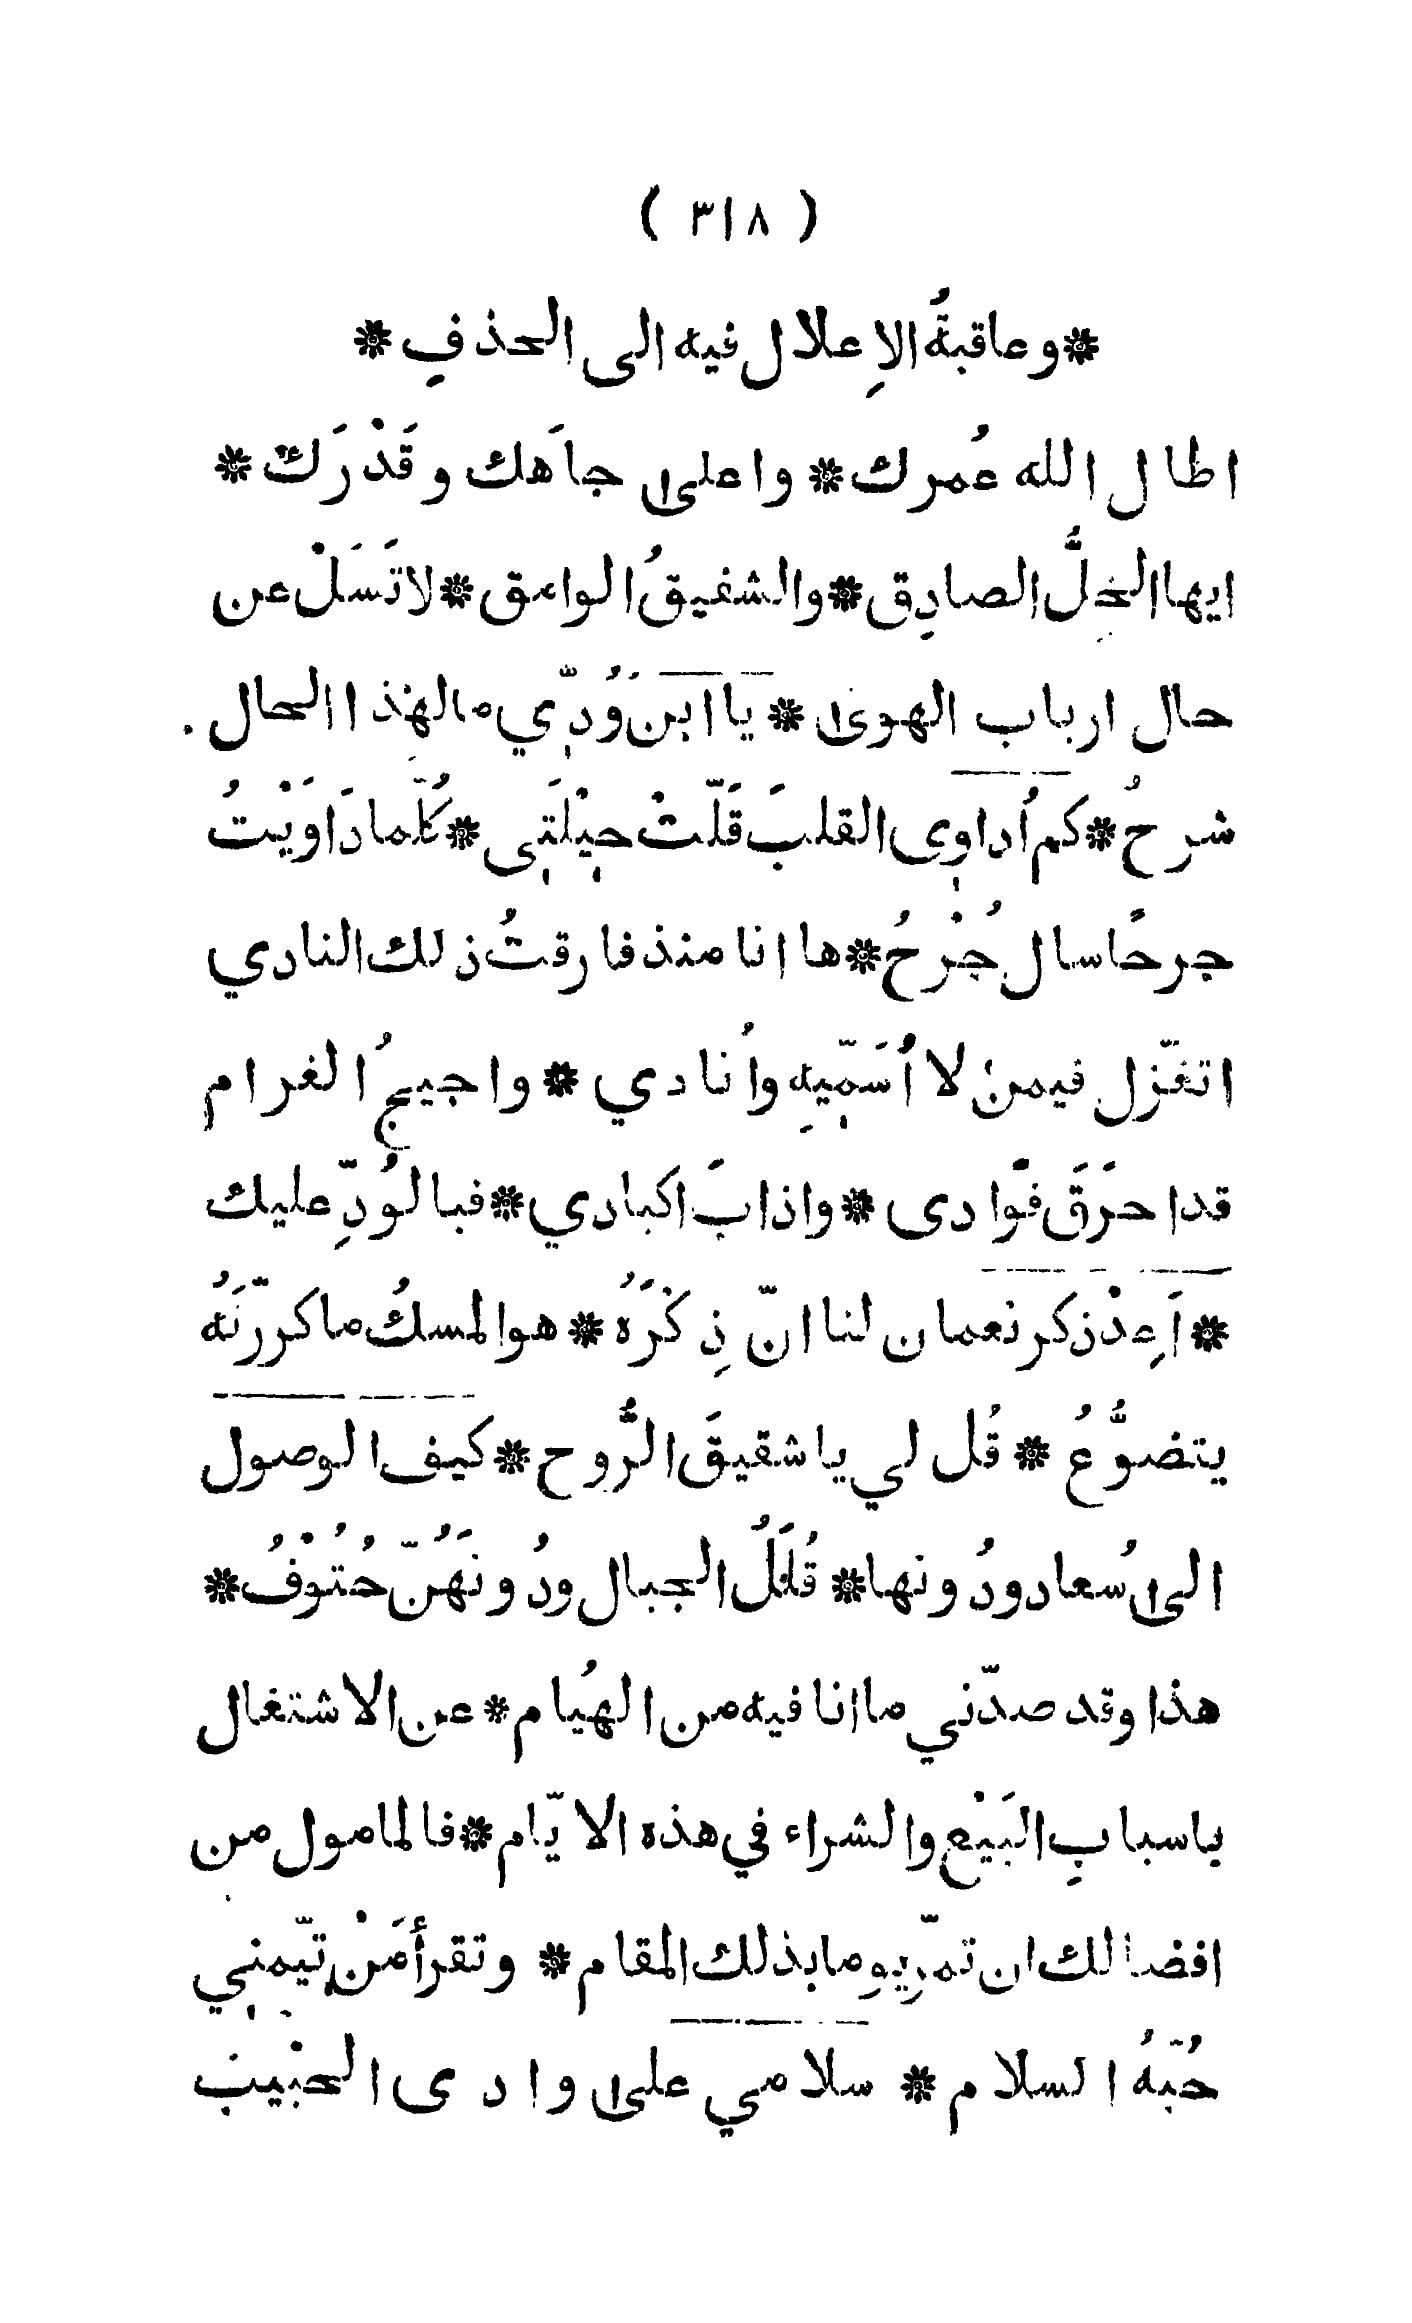 ( ٣١٨ )
* وعاقبةُ الاِعلال فيه الى الحذفِ *
اطال الله عُمرك * واعلىٰ جاَهك وقَدْرَكَ *
ايها الخلُّ الصادِق * والشفيقُ الوامق * لاتَسَلْ عن
حال ارباب الهوىٰ * يا ابن وُدِّي مالهٰذا الحال
شرحُ * كم اُداوِى القلبَ قَلّتْ حيْلَتِى * كُلّما دَاوَيْتُ
جرحًا سال جُرْحُ * ها انا منذ فارقتُ ذلك النادي
اتغزّل فيمن لا اُسَمّيهِ واُنادي * واجيجُ الغرام
قد احرَقَ فؤادى * واذابَ اكبادي * فبالوُدِّ عليك
* اَعِدْ ذكر نعمان لنا انّ ذِكْرَهُ * هو المسكُ ما كررّتَهُ
يتضوُّعُ * قُل لي يا شقيقَ الرُّوح * كيف الوصول
الىٰ سُعاد ودُونها * قُلَلُ الجبال ودُونَهُنّ حُتُوْفُ *
هذا وقد صدّني ما انا فيه من الهُيام * عن الاشتغال
باسبابِ البَيْع والشراء في هذه الايّام * فالمامول من
افضالك ان تمرّ يوما بذلك المقام * وتقرأ مَنْ تيّمنِي
حُبّهُ السلام * سلامي علىٰ وادى الحبيب